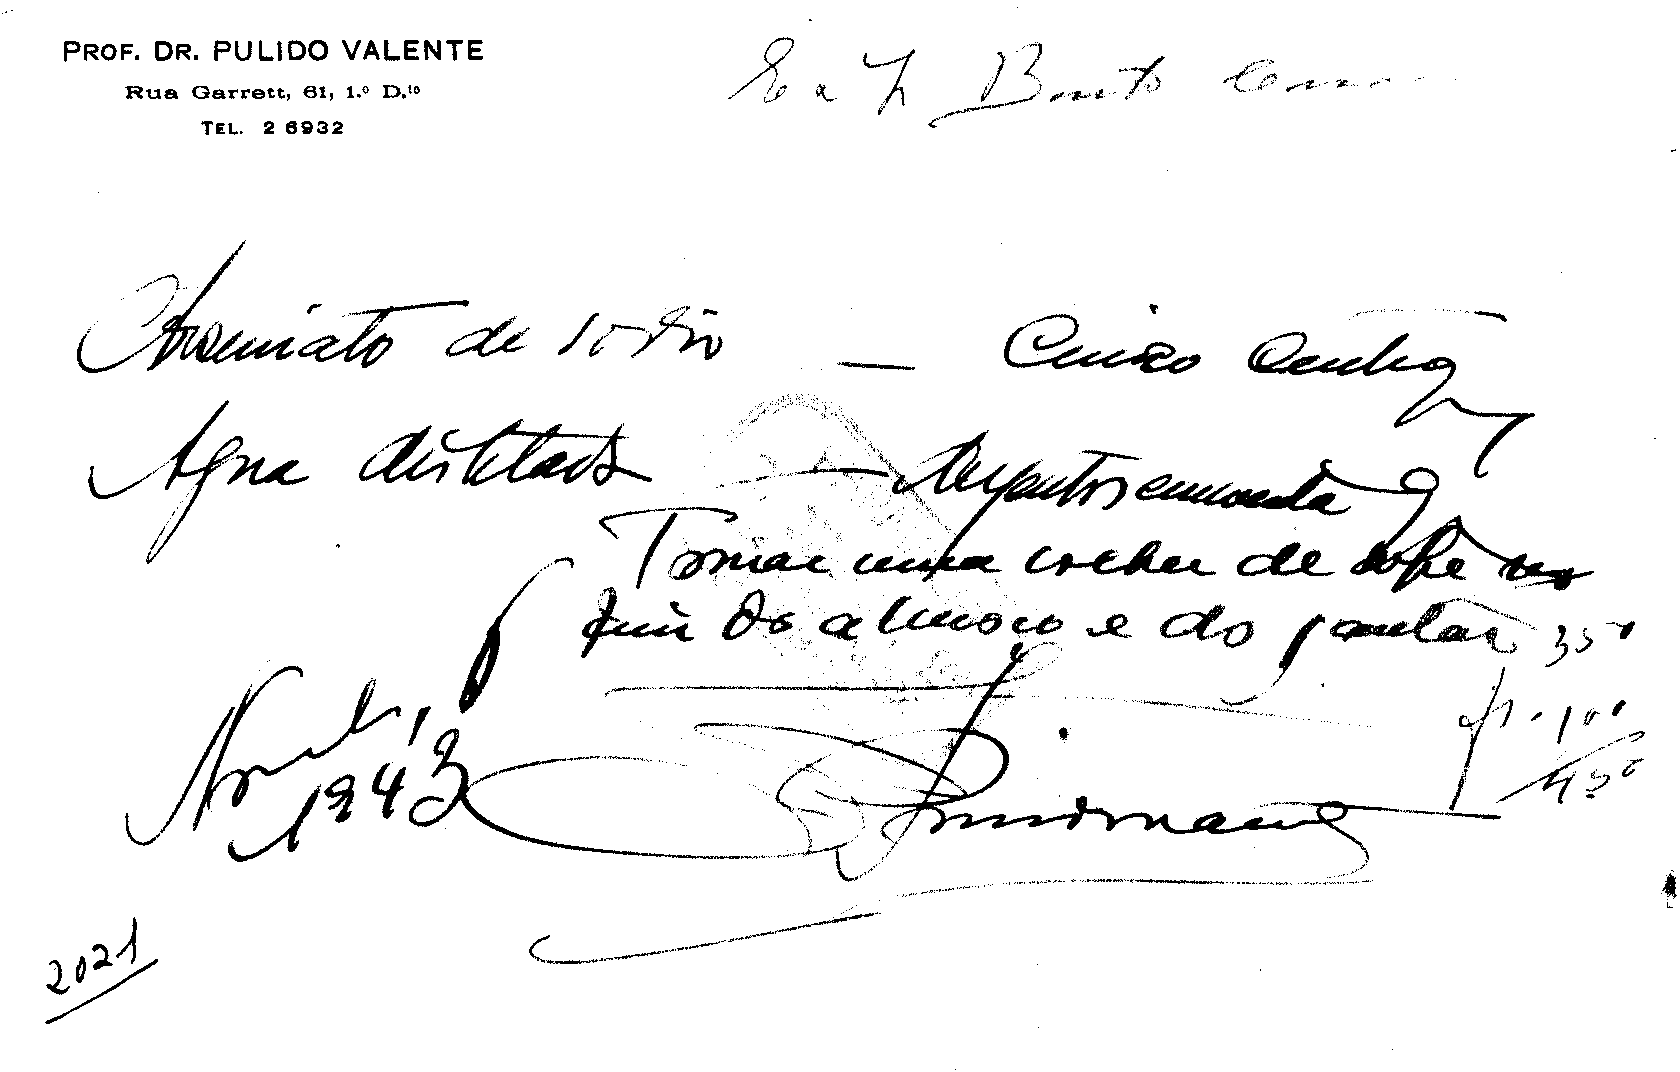 PROF. DR. PULIDO VALENTE
Rua Garrett, 61, 1.º D.to
TEL. 2 6932
Bento
Arseniato de sodio — Cinco Centig
Agua distilada — duzentos cincoenta g
Tomar uma colher de sopa no
fim do almoço e do jantar
350
100
450
1943
2021